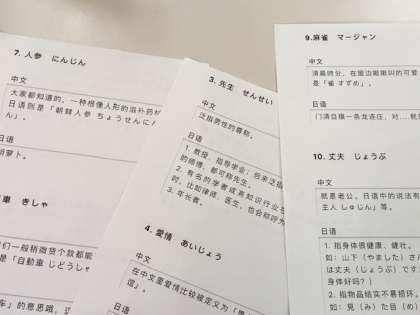 7. 人参　にんじん
中文
大家都知道的，一种根像人形的滋补药
日语则是「朝鮮人参 ちょうせんにん
ん」。
日语
胡萝卜。
車　きしゃ
们一般稍微贷个款都能
是「自動車 じどうしゃ
车」的意思哦，
3. 先生　せんせい
中文
泛指男性的尊称。
日语
1. 教授、指导学业；后来泛指
的师傅，都可称先生。
2. 有名的学者或高知识行业
时，比如律师、医生，也会称呼为
3. 年长者。
4. 愛情　あいじょう
中文
在中文里爱情比较被定义为「
谊」。
日语
9.麻雀　マージャン
中文
清晨时分，在窗边啾啾叫的可爱
是「雀 すずめ」。
日语
门清自摸一条龙连庄，对....就
10. 丈夫　じょうぶ
中文
就是老公。日语中的说法有
主人 しゅじん」等。
日语
1. 指身体很健康、健壮。
如：山下（やました）さ
は丈夫（じょうぶ）です
身体好吗？）
2. 指物品结实不易损坏。
如：見（み）た目（め）